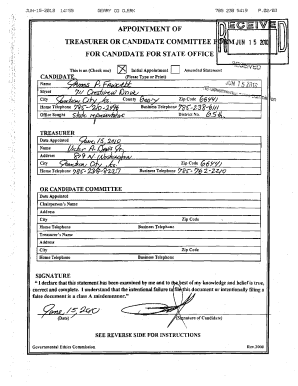 JUN-15-2010 14:55 GEARY CO CLERK 785 238 5419 P.02/03
RECEIVED
JUN 15 2010
APPOINTMENT OF
TREASURER OR CANDIDATE COMMITTEE FORM
FOR CANDIDATE FOR STATE OFFICE
RECEIVED
JUN 15 2010
This is an (Check one) X Initial Appointment Amended Statement
(Please Type or Print)
CANDIDATE
Name
Street
City Junction City, Ks. County Geary Zip Code 66441
Home Telephone Business Telephone 785-238-6111
Office Sought State representative District No. 65th
TREASURER
Date Appointed June 15, 2010
Name
Address 829 N Washington
City Junction City, Ks Zip Code 66441
Home Telephone 785-238-8227 Business Telephone 785-762-2210
OR CANDIDATE COMMITTEE
Date Appointed
Chairperson's Name
Address
City Zip Code
Home Telephone Business Telephone
Treasurer's Name
Address
City Zip Code
Home Telephone Business Telephone
SIGNATURE
"I declare that this statement has been examined by me and to the best of my knowledge and belief is true,
correct and complete. I understand that the intentional failure to file this document or intentionally filing a
false document is a class A misdemeanor."
June 15, 2010
(Date) (Signature of Candidate)
SEE REVERSE SIDE FOR INSTRUCTIONS
Governmental Ethics Commission Rev.2000